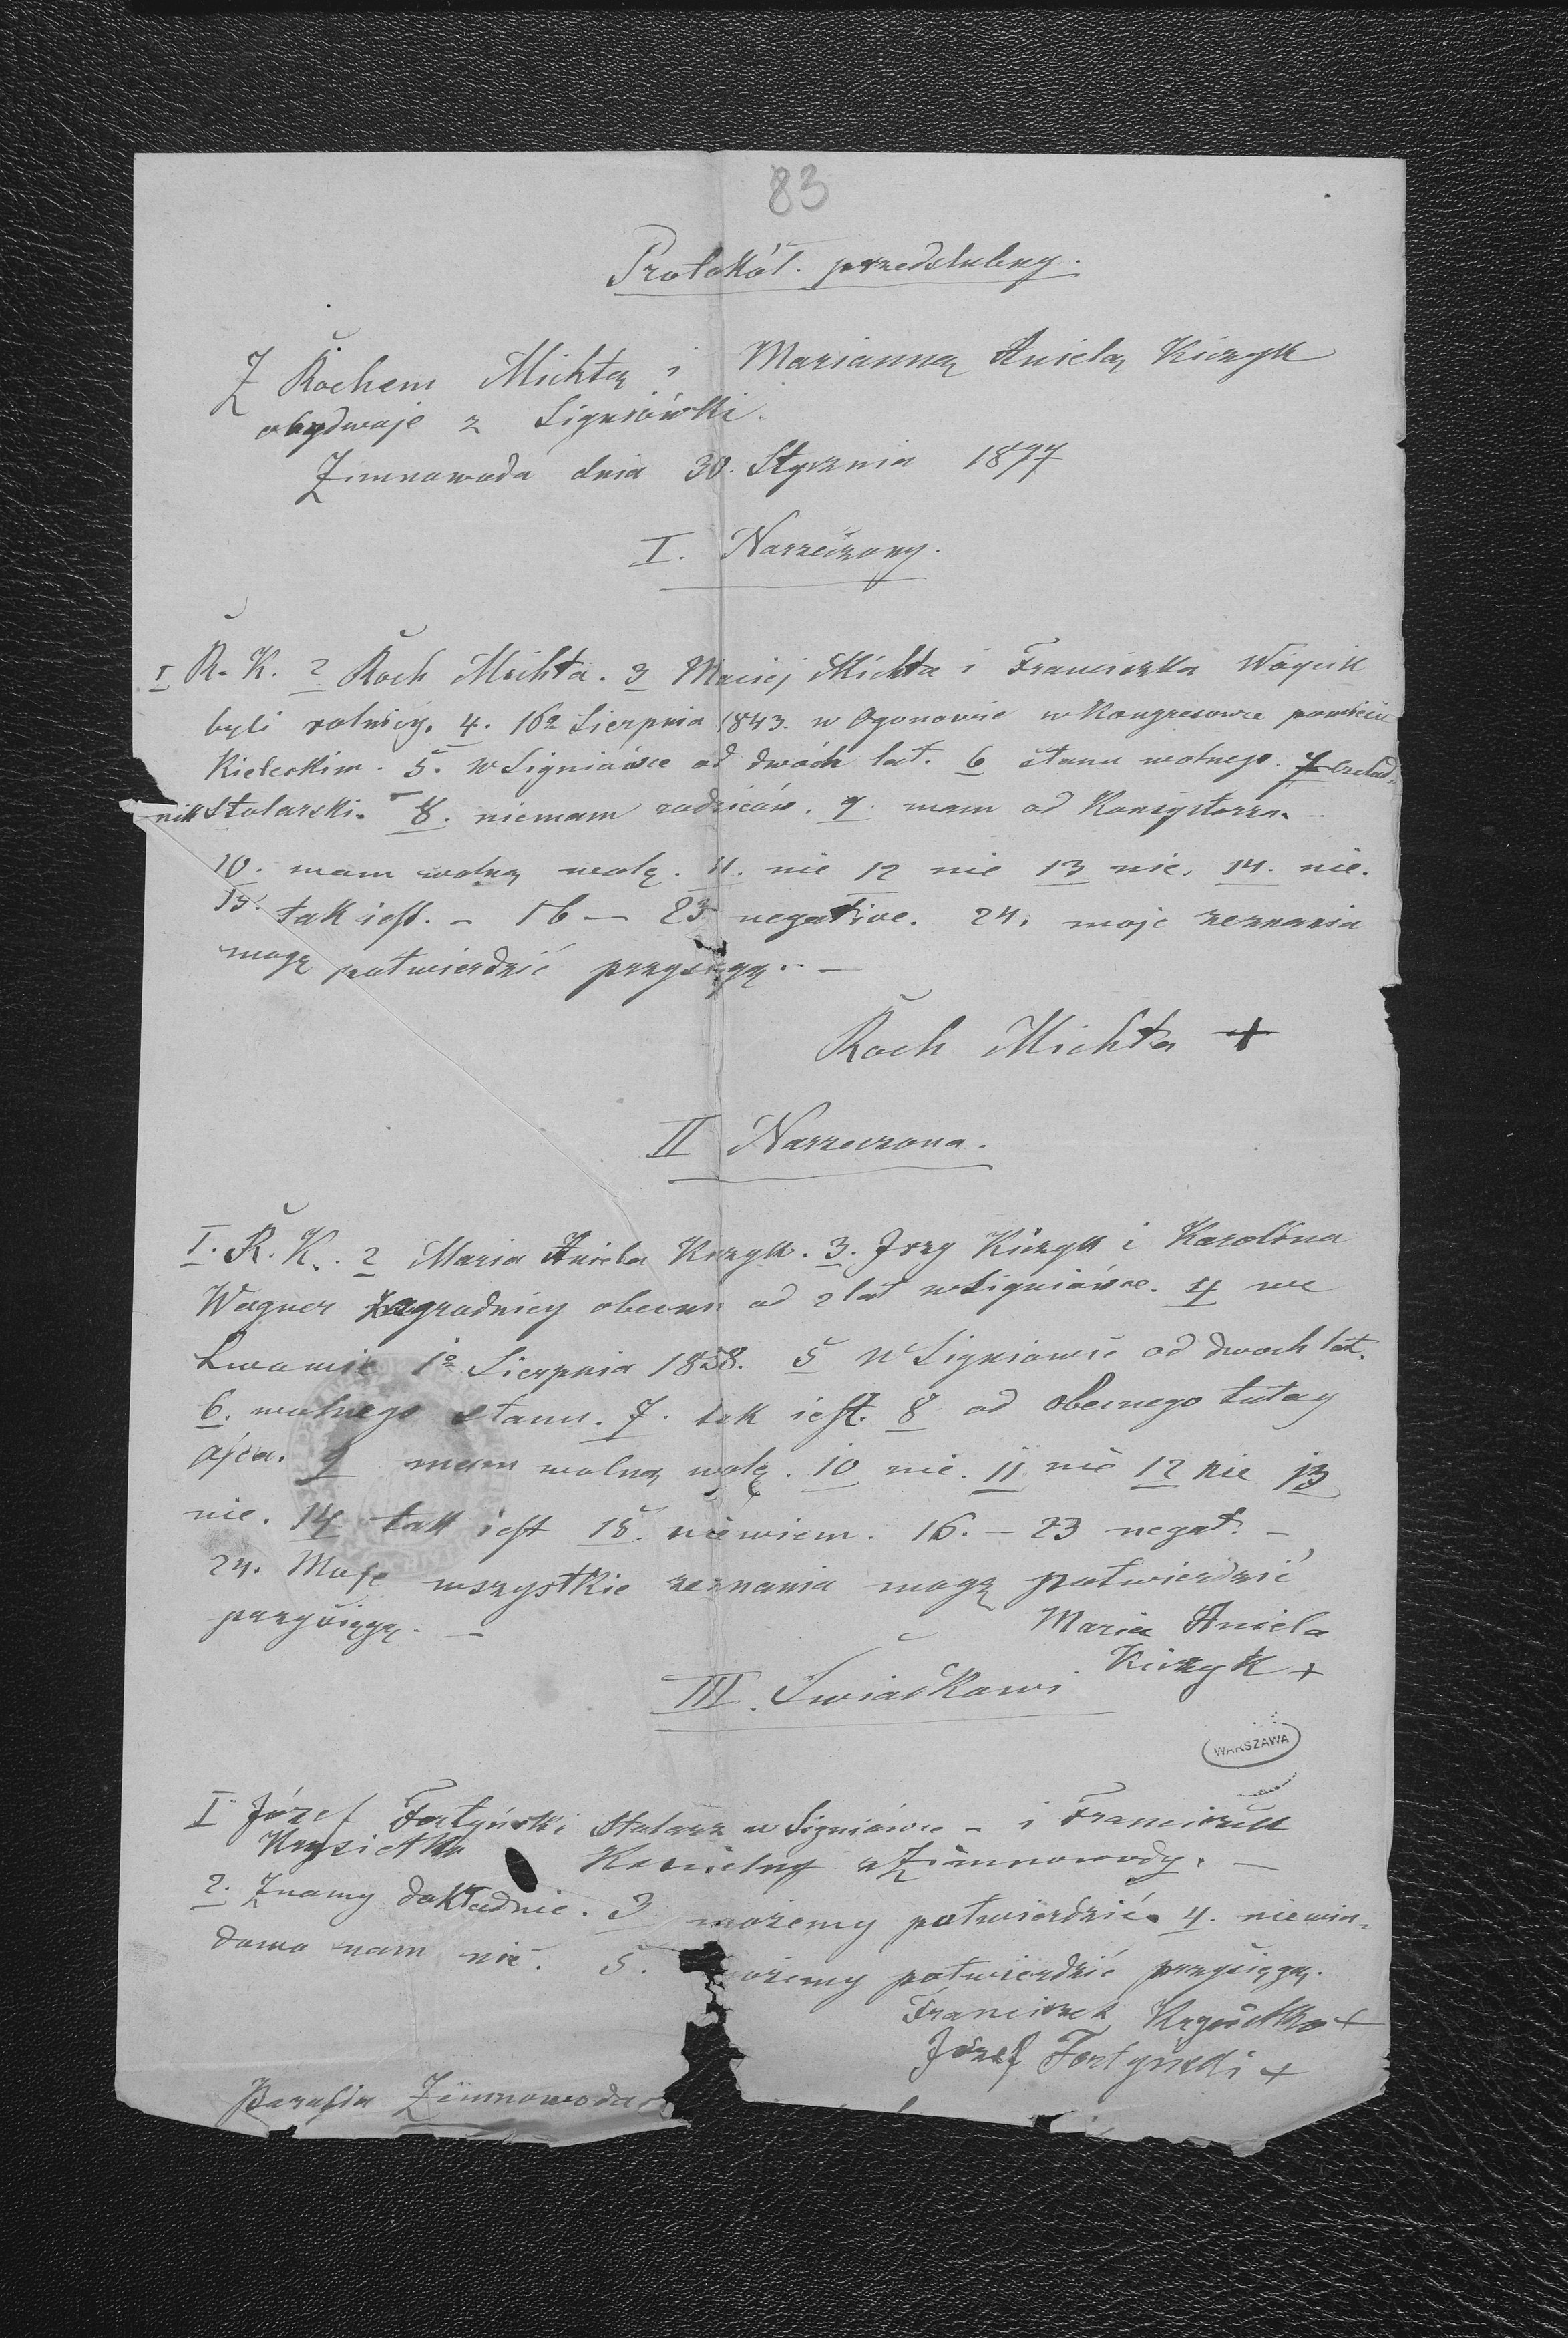 83
Protokół. przedslubny.
Z Rochem Michtą i Marianną Anielą Kiczyk
obydwoje z Signiówki.
Zimnawoda dnia 30. Stycznia 1877
I. Narzeczony.
I R. K. 2 Roch Michta. 3 Maciej Michta i Franciszka Wójcik
byli rolnicy. 4. 16 Sierpnia 1843. w w Kongresowce powiecie
Kieleckim. 5. W Signiówce od dwóch lat. 6 stanu wolnego. 7 czelad-
nik stolarski. 8. niemam rodziców. 9. mam od Konsystorza.
10. mam wolną wolę. 11. nie 12 nie 13 nie. 14. nie.
15. tak iest. - 16 - 23 negative. 24. moje zeznania
mogę potwierdzić przysięgą. -
Roch Michta +
II Narzeczona.
I. R. K. 2 Maria Aniela Kiczyk. 3. Jerzy Kiczyk i Karolina
Wagner zagrodnicy obecnie od 2 lat w Signiówce. 4 we
Lwowie 1o Sierpnia 1858. 5 W Signiowce od dwoch lat.
6. wolnego stanu. 7. tak iest. 8 od obecnego tutay
ojca. 9 mam wolną wolę. 10 nie. 11 nie 12 nie 13
nie. 14 tak iest 15. niewiem. 16. - 23 negat. -
24. Moje wszystkie zeznania mogę potwierdzić
przysięgą. -
Maria Aniela
Kiczyk +
III. Swiadkowi
WARSZAWA
I Józef Fortyński Stolarz w Signiówce - i Franciszek
Kościelny z Zimnowody. -
2. Znamy dokładnie. 3 możemy potwierdzić. 4. niewia-
domo nam nic. 5. możemy potwierdzić przysięgą.
Franciszek +
Józef Fortynski +
Parafia Zimnowoda